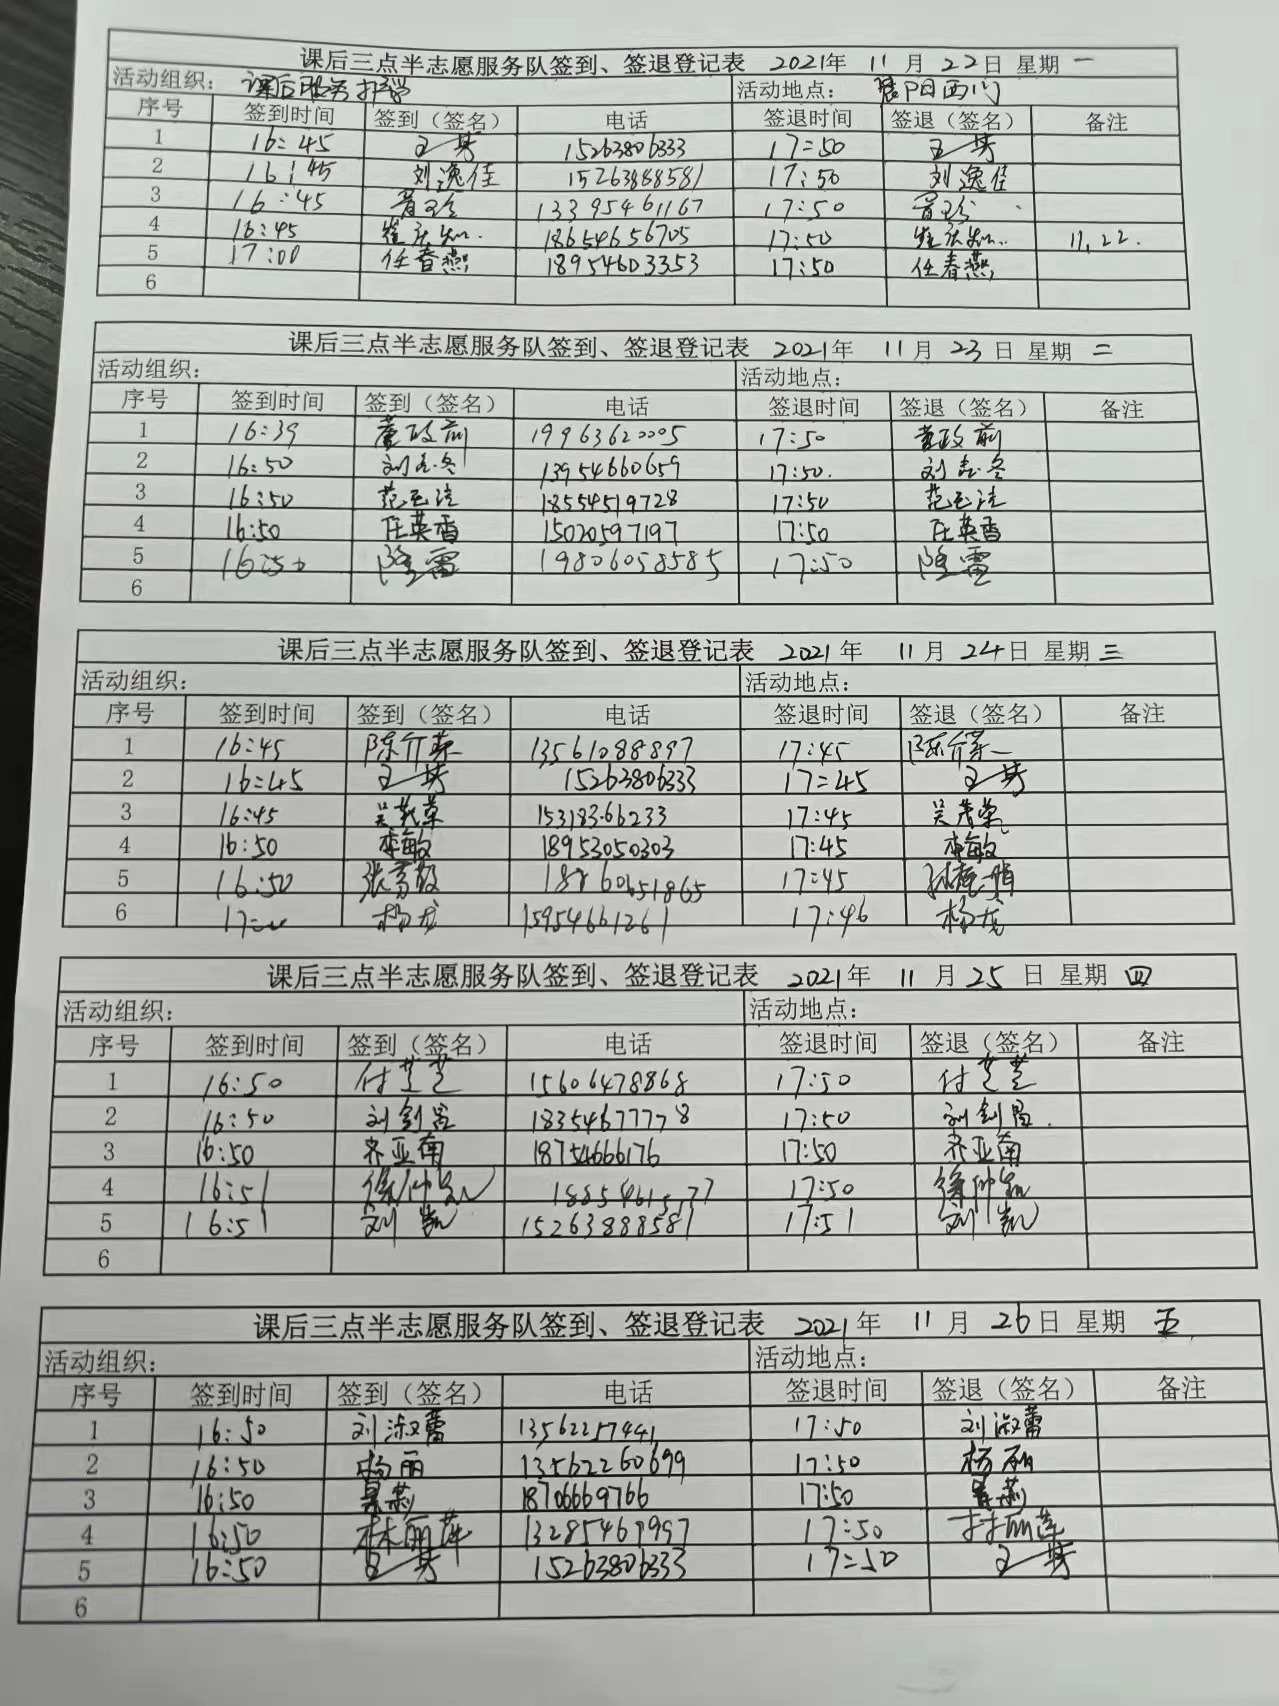 课后三点半志愿服务队签到、签退登记表 2021年 11月22日 星期一
活动组织： 课后服务 活动地点： 西门
序号 签到时间 签到（签名） 电话 签退时间 签退（签名） 备注
1 16:45 王芳 15263806333 17:50 王芳
2 16:45 刘逸佳 15263888581 17:50 刘逸佳
3 16:45 13395461167 17:50
4 16:45 18654656705 17:50 11,22.
5 17:00 任春燕 18954603353 17:50 任春燕
6
课后三点半志愿服务队签到、签退登记表 2021年 11月23日 星期二
活动组织： 活动地点：
序号 签到时间 签到（签名） 电话 签退时间 签退（签名） 备注
1 16:39 董政前 19963620005 17:50 董政前
2 16:50 13954660659 17:50.
3 16:50 18554519728 17:50
4 16:50 任英香 15020597197 17:50 任英香
5 16:50 隆雷 19806058585 17:50 隆雷
6
课后三点半志愿服务队签到、签退登记表 2021年 11月24日 星期三
活动组织： 活动地点：
序号 签到时间 签到（签名） 电话 签退时间 签退（签名） 备注
1 16:45 13561088897 17:45
2 16:45 王芳 15263806333 17:45 王芳
3 16:45 吴茂荣 15318366233 17:45 吴茂荣
4 16:50 李敏 18953050303 17:45 李敏
5 16:50 17:45
6 杨龙 15954661261 17:46 杨龙
课后三点半志愿服务队签到、签退登记表 2021年 11月25日 星期四
活动组织： 活动地点：
序号 签到时间 签到（签名） 电话 签退时间 签退（签名） 备注
1 16:50 付芝芝 15606478868 17:50 付芝芝
2 16:50 刘剑昌 18354677778 17:50 刘剑昌
3 16:50 齐亚南 18754666176 17:50 齐亚南
4 16:51 17:50
5 16:51 刘凯 15263888581 17:51 刘凯
6
课后三点半志愿服务队签到、签退登记表 2021年 11月26日 星期五
活动组织： 活动地点：
序号 签到时间 签到（签名） 电话 签退时间 签退（签名） 备注
1 16:50 刘淑蕾 13562257441 17:50 刘淑蕾
2 16:50 杨丽 13562260699 17:50 杨丽
3 16:50 18706669766 17:50
4 16:50 林丽萍 13285467997 17:50 林丽萍
5 16:50 王芳 15263806333 17:50 王芳
6